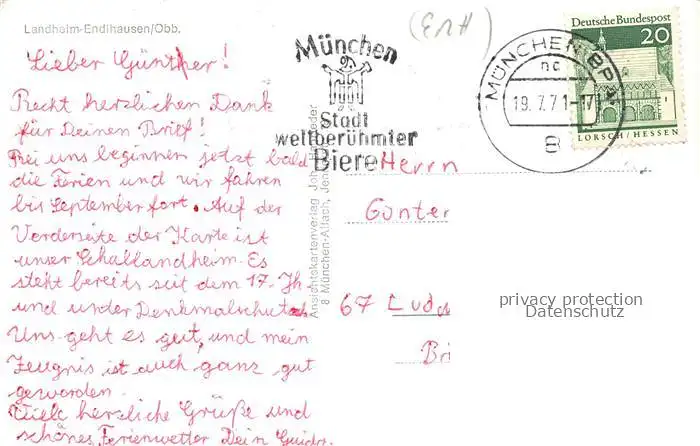 Landheim-Endlhausen/Obb.
Lieber Günther!
Recht herzlichen Dank
für Deinen Brief!
Bei uns beginnen jetzt bald
die Ferien und wir fahren
bis September fort. Auf der
Vorderseite der Karte ist
unser Schullandheim. Es
steht bereits seit dem 17. Jh
und unter Denkmalschutz.
Uns geht es gut, und mein
Zeugnis ist auch ganz gut
geworden.
Viele herzliche Grüße und
schönes Ferienwetter Dein Guido.
Ansichtskartenverlag Joh
8 München-Allach, Jen
München
Stadt
weltberühmter
Biere
MÜNCHEN BPA
nc
19.7.71-17
8
Deutsche Bundespost
20
LORSCH/HESSEN
Herrn
Günter
67 Lud
Bri
privacy protection
Datenschutz